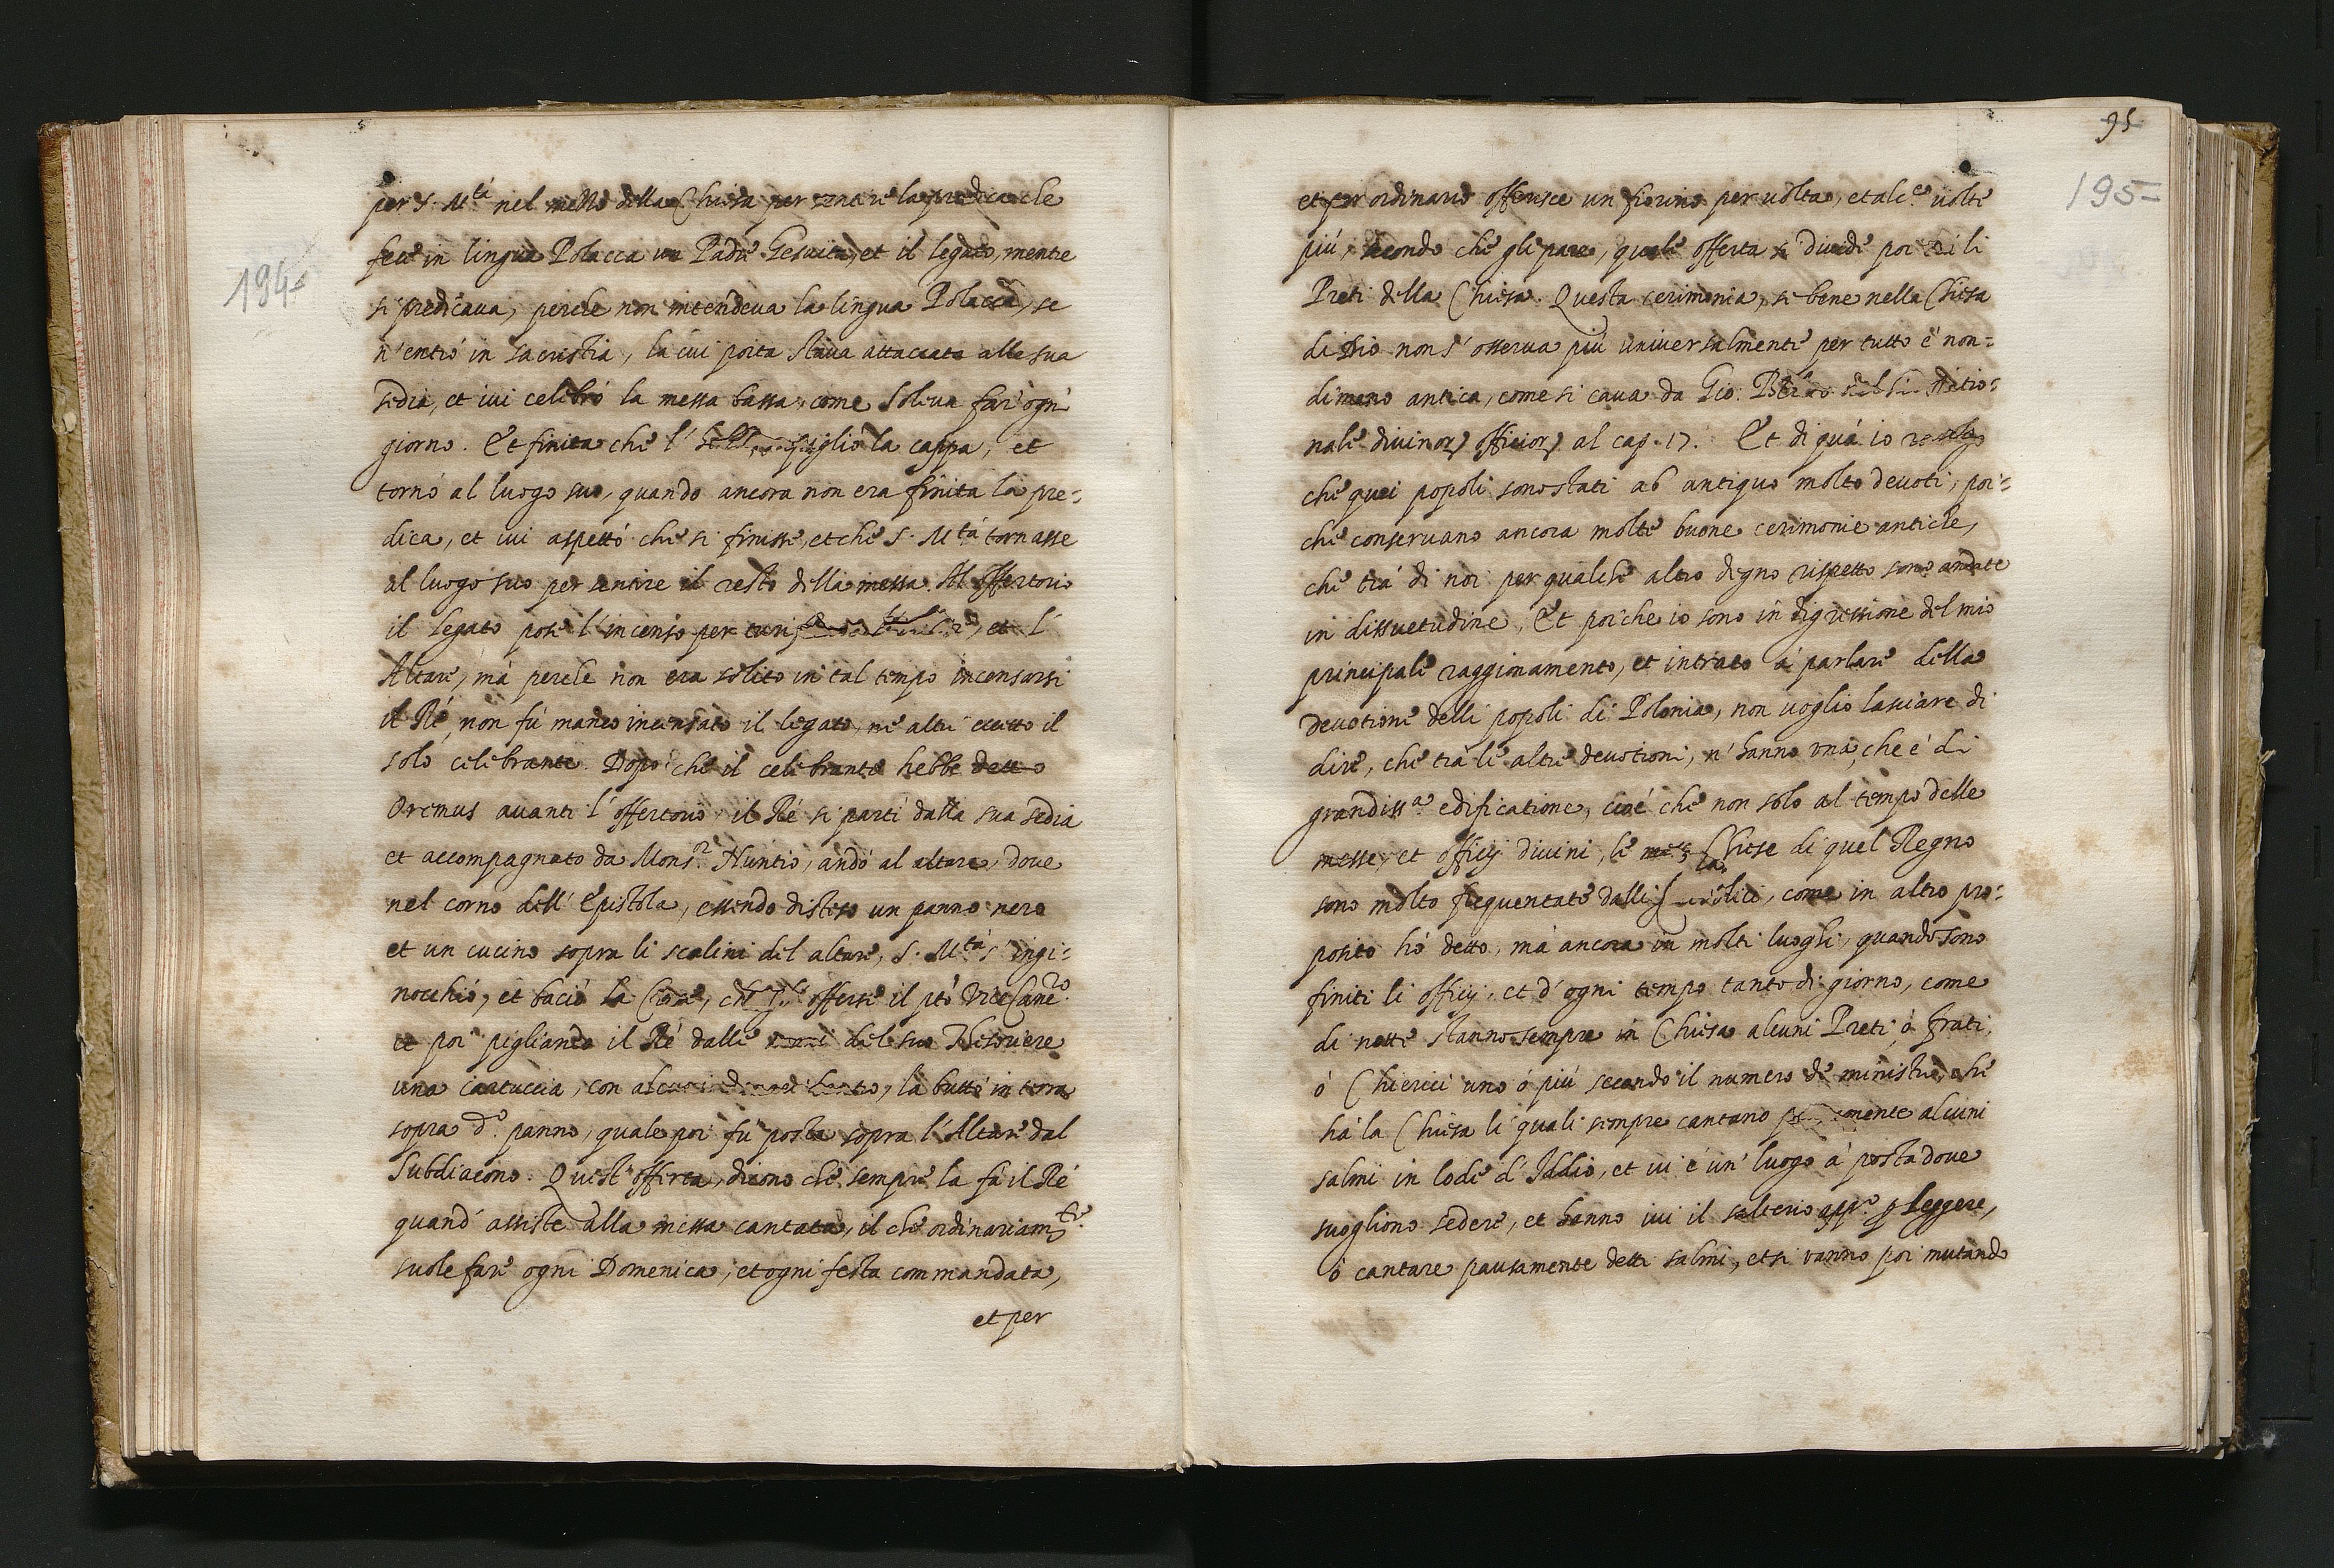 194
per S. M.tà nel mezzo della Chiesa per sentire la predica che
fece in lingua Polacca un Padre Gesuita, et il legato, mentre
si predicava, perche non intendeva la lingua Polacca, se
n'entró in sacristia, la cui porta stava attaccata alla sua
sedia, et ivi celebró la messa bassa, come soleva far' ogni
giorno. Et finita che l' pigliò la cappa, et
tornó al luogo suo, quando ancora non era finita la pre=
dica, et ivi aspettó che si finisse, et che S. M.tà tornasse
al luogo suo per sentire il resto della messa. Al offertorio
il legato pose l'incenso per et l'
Altare, mà perche non era solito in tal tempo incensarsi
il Ré, non fù manco incensato il legato, né altri eccetto il
solo celebrante. Dopo che il celebrante hebbe detto
Oremus avanti l'offertorio, il Ré si partì dalla sua sedia
et accompagnato da Mons.r Nuntio, andó al altare, dove
nel corno dell'Epistola, essendo disteso un panno nero
et un cucino sopra li scalini del altare, S. M.tà s'ingi=
nocchió, et bació la Croce, che gli offerse il p.to ViceCanc.ro
et poi pigliando il Ré dalle mani del suo Thesoriere
una cartuccia, con la buttó in terra
sopra d.o panno, quale poi fu posta sopra l'Altare dal
Subdiacono. Quest'offerta, dicono che sempre la fà il Ré
quand' assiste alla messa cantata, il che ordinariam.te
suole fare ogni Domenica, et ogni festa commandata,
et per
95
195
et per ordinario offerisce un fiorino per volta, et alc.e volte
più, secondo che gli pare, quale offerta si divide poi trà li
Preti della Chiesa. Questa cerimonia, se bene nella Chiesa
di Dio non s'osserva più universalmente per tutto é non=
dimeno antica, come si cava da Gio. nel Ratio=
nale divinor. officior. al cap. 17. Et di quà io
che quei popoli sono stati ab antiquo molto devoti, poi=
che conservano ancora molte buone cerimonie antiche,
che trà di noi per qualche altro degno rispetto sono andate
in dissuetudine. Et poiche io sono in digressione del mio
principale raggionamento, et intrato à parlare della
devotione delli popoli di Polonia, non voglio lasciare di
dire, che trà le altre devotioni, n'hanno una, che é di
grandiss.a edificatione, cioé che non solo al tempo delle
messe, et officij divini, le Chiese di quel Regno
sono molto frequentate dalli Catholici, come in altro pro=
posito hó detto, mà ancora in molti luoghi, quando sono
finiti li officij, et d'ogni tempo tanto di giorno, come
di notte stanno sempre in Chiesa alcuni Preti, ó frati,
ó Chierici uno ó più secondo il numero de ministri, che
hà la Chiesa li quali sempre cantano alcuni
salmi in lode d'Iddio, et vi é un' luogo à posta dove
sogliono sedere, et hanno ivi il salterio app.o p leggere,
ó cantare pausamente detti salmi, et si vanno poi mutando